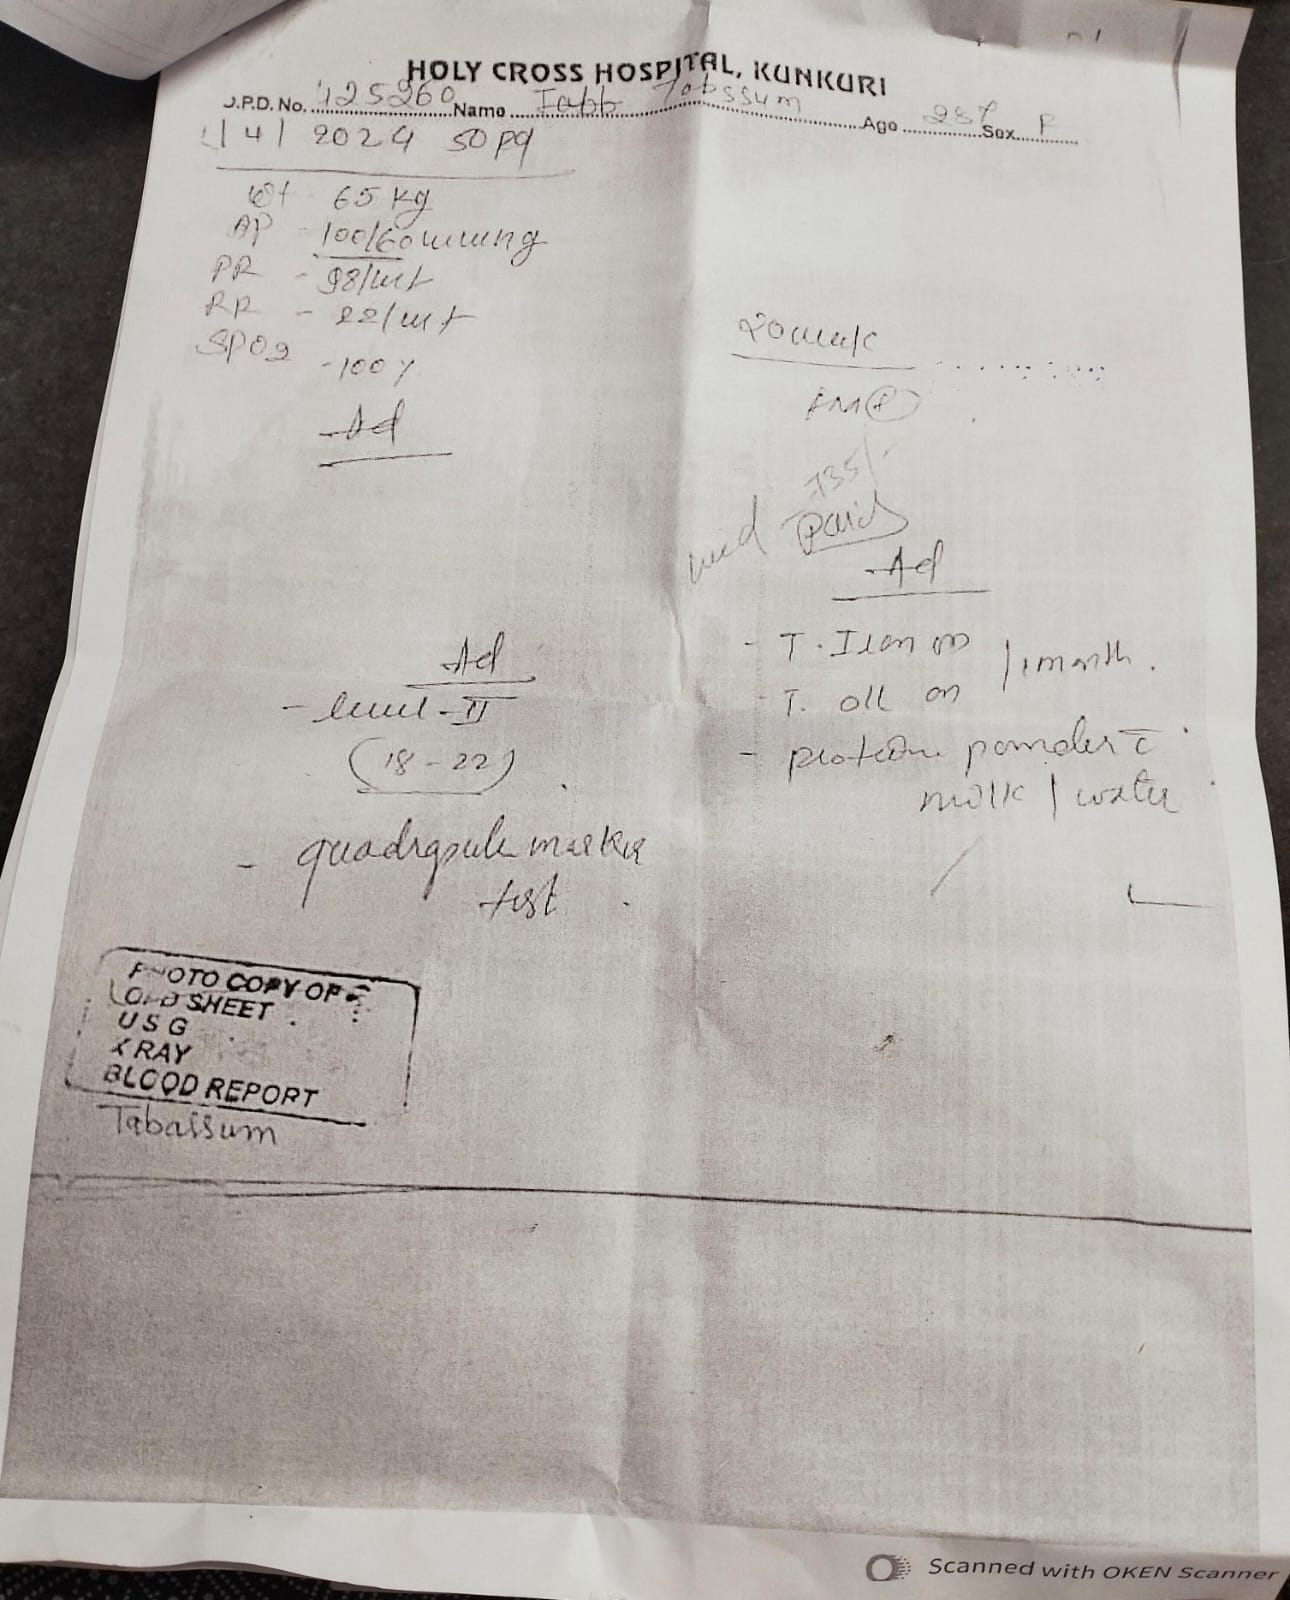 HOLY CROSS HOSPITAL, KUNKURI
O.P.D. No. 425260 Name Tabssum Age 28Y Sex F
1/4/2024 50 pq
Wt - 65 Kg
AP - 100/60 mmHg
PR - 98/mt
RR - 22/mt
SPO2 - 100%
Ad
20 week
FM
735/-
med Paid
Ad
- T. Iron OD
/ 1 month.
- T. OD
- protein powder c̄
milk / water
Ad
- level - II
(18 - 22)
- quadruple marker
test
PHOTO COPY OF
OPD SHEET
USG
X RAY
BLOOD REPORT
Tabassum
Scanned with OKEN Scanner